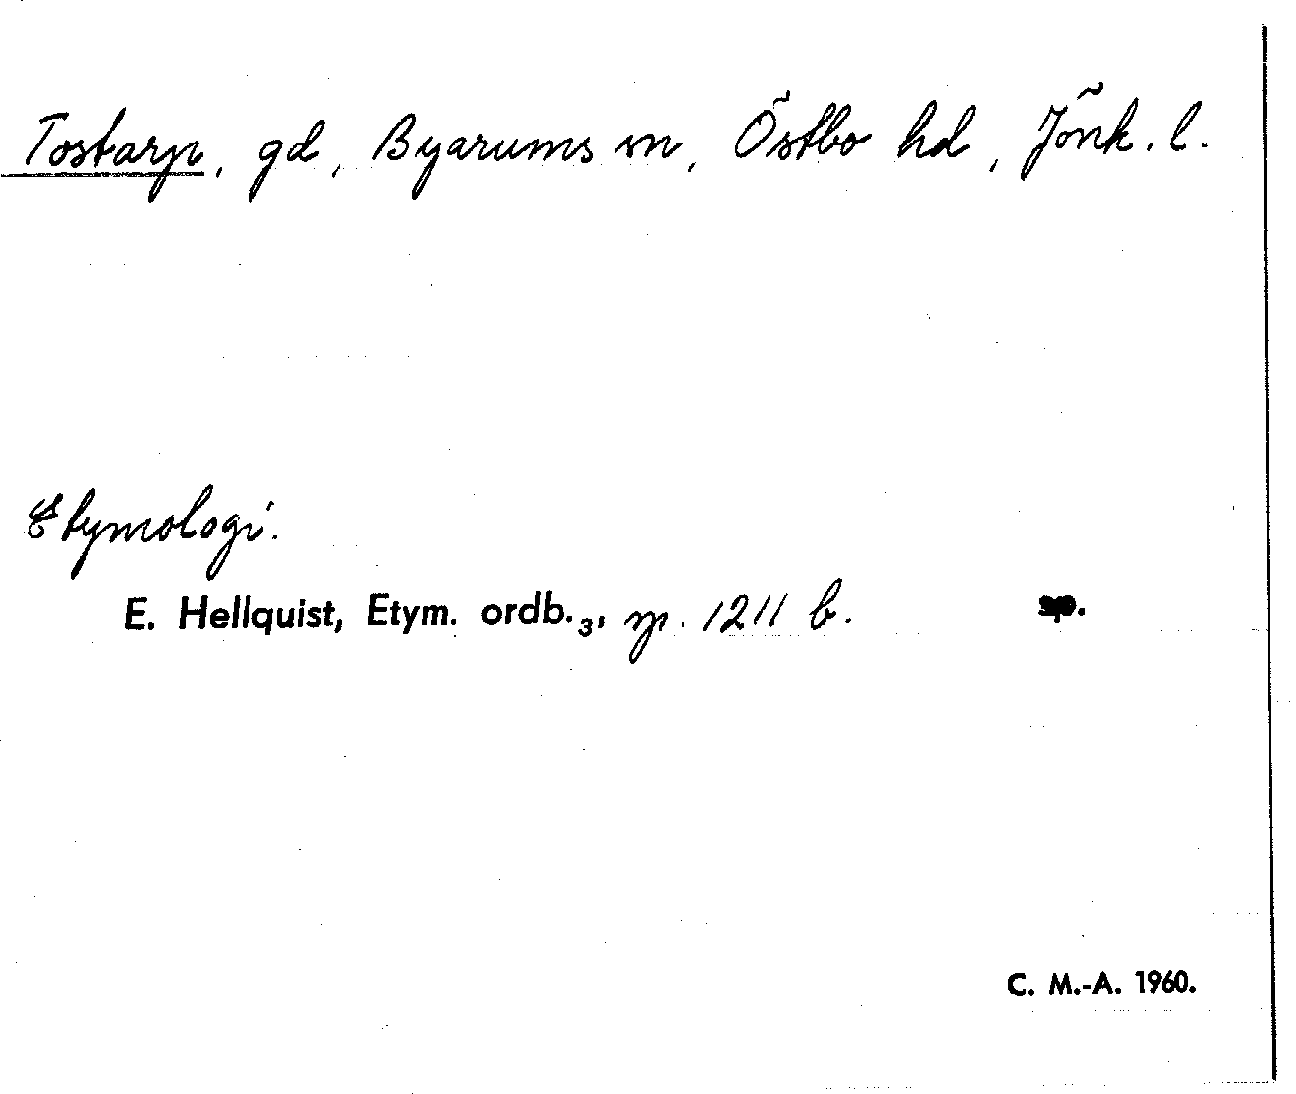 Tostarp, gd, Byarums sn, Östbo hd, Jönk. l.
Etymologi.
E. Hellquist, Etym. ordb.₃, sp. 1211 b.
C. M.-A. 1960.